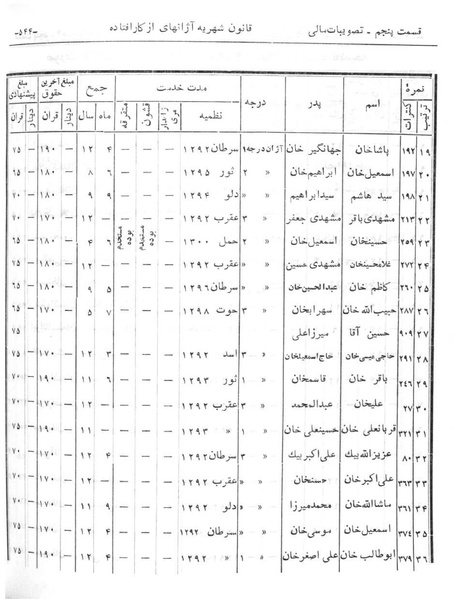 قسمت پنجم - تصویبات سالی قانون شهریه آژانهای از کار افتاده -۵۴۴-
نمرهٔ ترتیب کنترات اسم پدر درجه مدت خدمت نظمیه ژاندارمری قشون متفرقه جمع ماه سال مبلغ آخرین حقوق دینار قران مبلغ پیشنهادی دینار قران
۱۹ ۱۹۲ پاشاخان جهانگیر خان آژان درجه ۱ سرطان ۱۲۹۲ — — — ۴ ۱۲ — ۱۹۰ — ۷۵
۲۰ ۱۹۷ اسمعیل خان ابراهیم خان » ۲ ثور ۱۲۹۵ — — — ۶ ۸ — ۱۸۰ — ۶۵
۲۱ ۱۹۸ سید هاشم سید ابراهیم » » دلو ۱۲۹۴ — — — ۹ ۹ — ۱۸۰ — ۷۰
۲۲ ۲۱۳ مشهدی باقر مشهدی جعفر » ۳ عقرب ۱۲۹۲ — — ۱۲ — ۱۷۰ — ۷۰
۲۳ ۲۵۹ حسینخان اسمعیل خان » ۲ حمل ۱۳۰۰ — مستخدم بوده مستخدم بوده ۴ ۶ — ۱۸۰ — ۶۵
۲۴ ۲۷۲ غلامحسینخان مشهدی حسین » » عقرب ۱۲۹۲ — ۱۲ — ۱۸۰ — ۷۵
۲۵ ۲۶۰ کاظم خان عبدالحسین خان » » سرطان ۱۲۹۶ — — — ۵ ۹ — ۱۸۰ — ۶۵
۲۶ ۲۸۷ حبیب الله خان سهرابخان » ۳ حوت ۱۲۹۸ — — — ۷ ۵ — ۱۷۰ — ۶۵
۲۷ ۹۰۹ حسین آقا میرزا علی ۷۵
۲۸ ۲۹۱ حاجی عیسی خان حاج اسمعیلخان » ۳ اسد ۱۲۹۲ — — — ۳ ۱۲ — ۱۷۰ — ۷۰
۲۹ ۲۴۶ باقر خان قاسمخان » ۱ ثور ۱۲۹۳ — — — ۶ ۱۱ — ۱۹۰ — ۷۰
۳۰ ۲۷ علیخان عبدالمحمد » ۳ عقرب ۱۲۹۲ — — — — ۱۲ — ۱۷۰ — ۷۰
۳۱ ۳۲۱ قربانعلی خان حسینعلی خان » ۱ » ۱۲۹۳
۳۲ ۸۰ عزیزالله بیك علی اکبر بیك » ۳ سرطان ۱۲۹۲ — — — ۴ ۱۲ — ۱۷۰
۳۳ ۳۶۳ علی اکبر خان حسنخان » » عقرب ۱۲۹۲ — — — — ۱۲ — ۱۷۰
۳۴ ۳۶۱ ماشاالله خان محمد میرزا » » دلو ۱۲۹۲ — — — ۹ ۱۱ — ۱۷۰ — ۷۰
۳۵ ۳۷۴ اسمعیل خان موسی خان » » سرطان ۱۲۹۲ — — — ۴ ۱۲ — ۱۷۰ — ۷۵
۳۶ ۳۷۹ ابوطالب خان علی اصغر خان » ۱ » ۱۲۹۲ — — — ۴ ۱۲ — ۱۹۰ — ۷۵